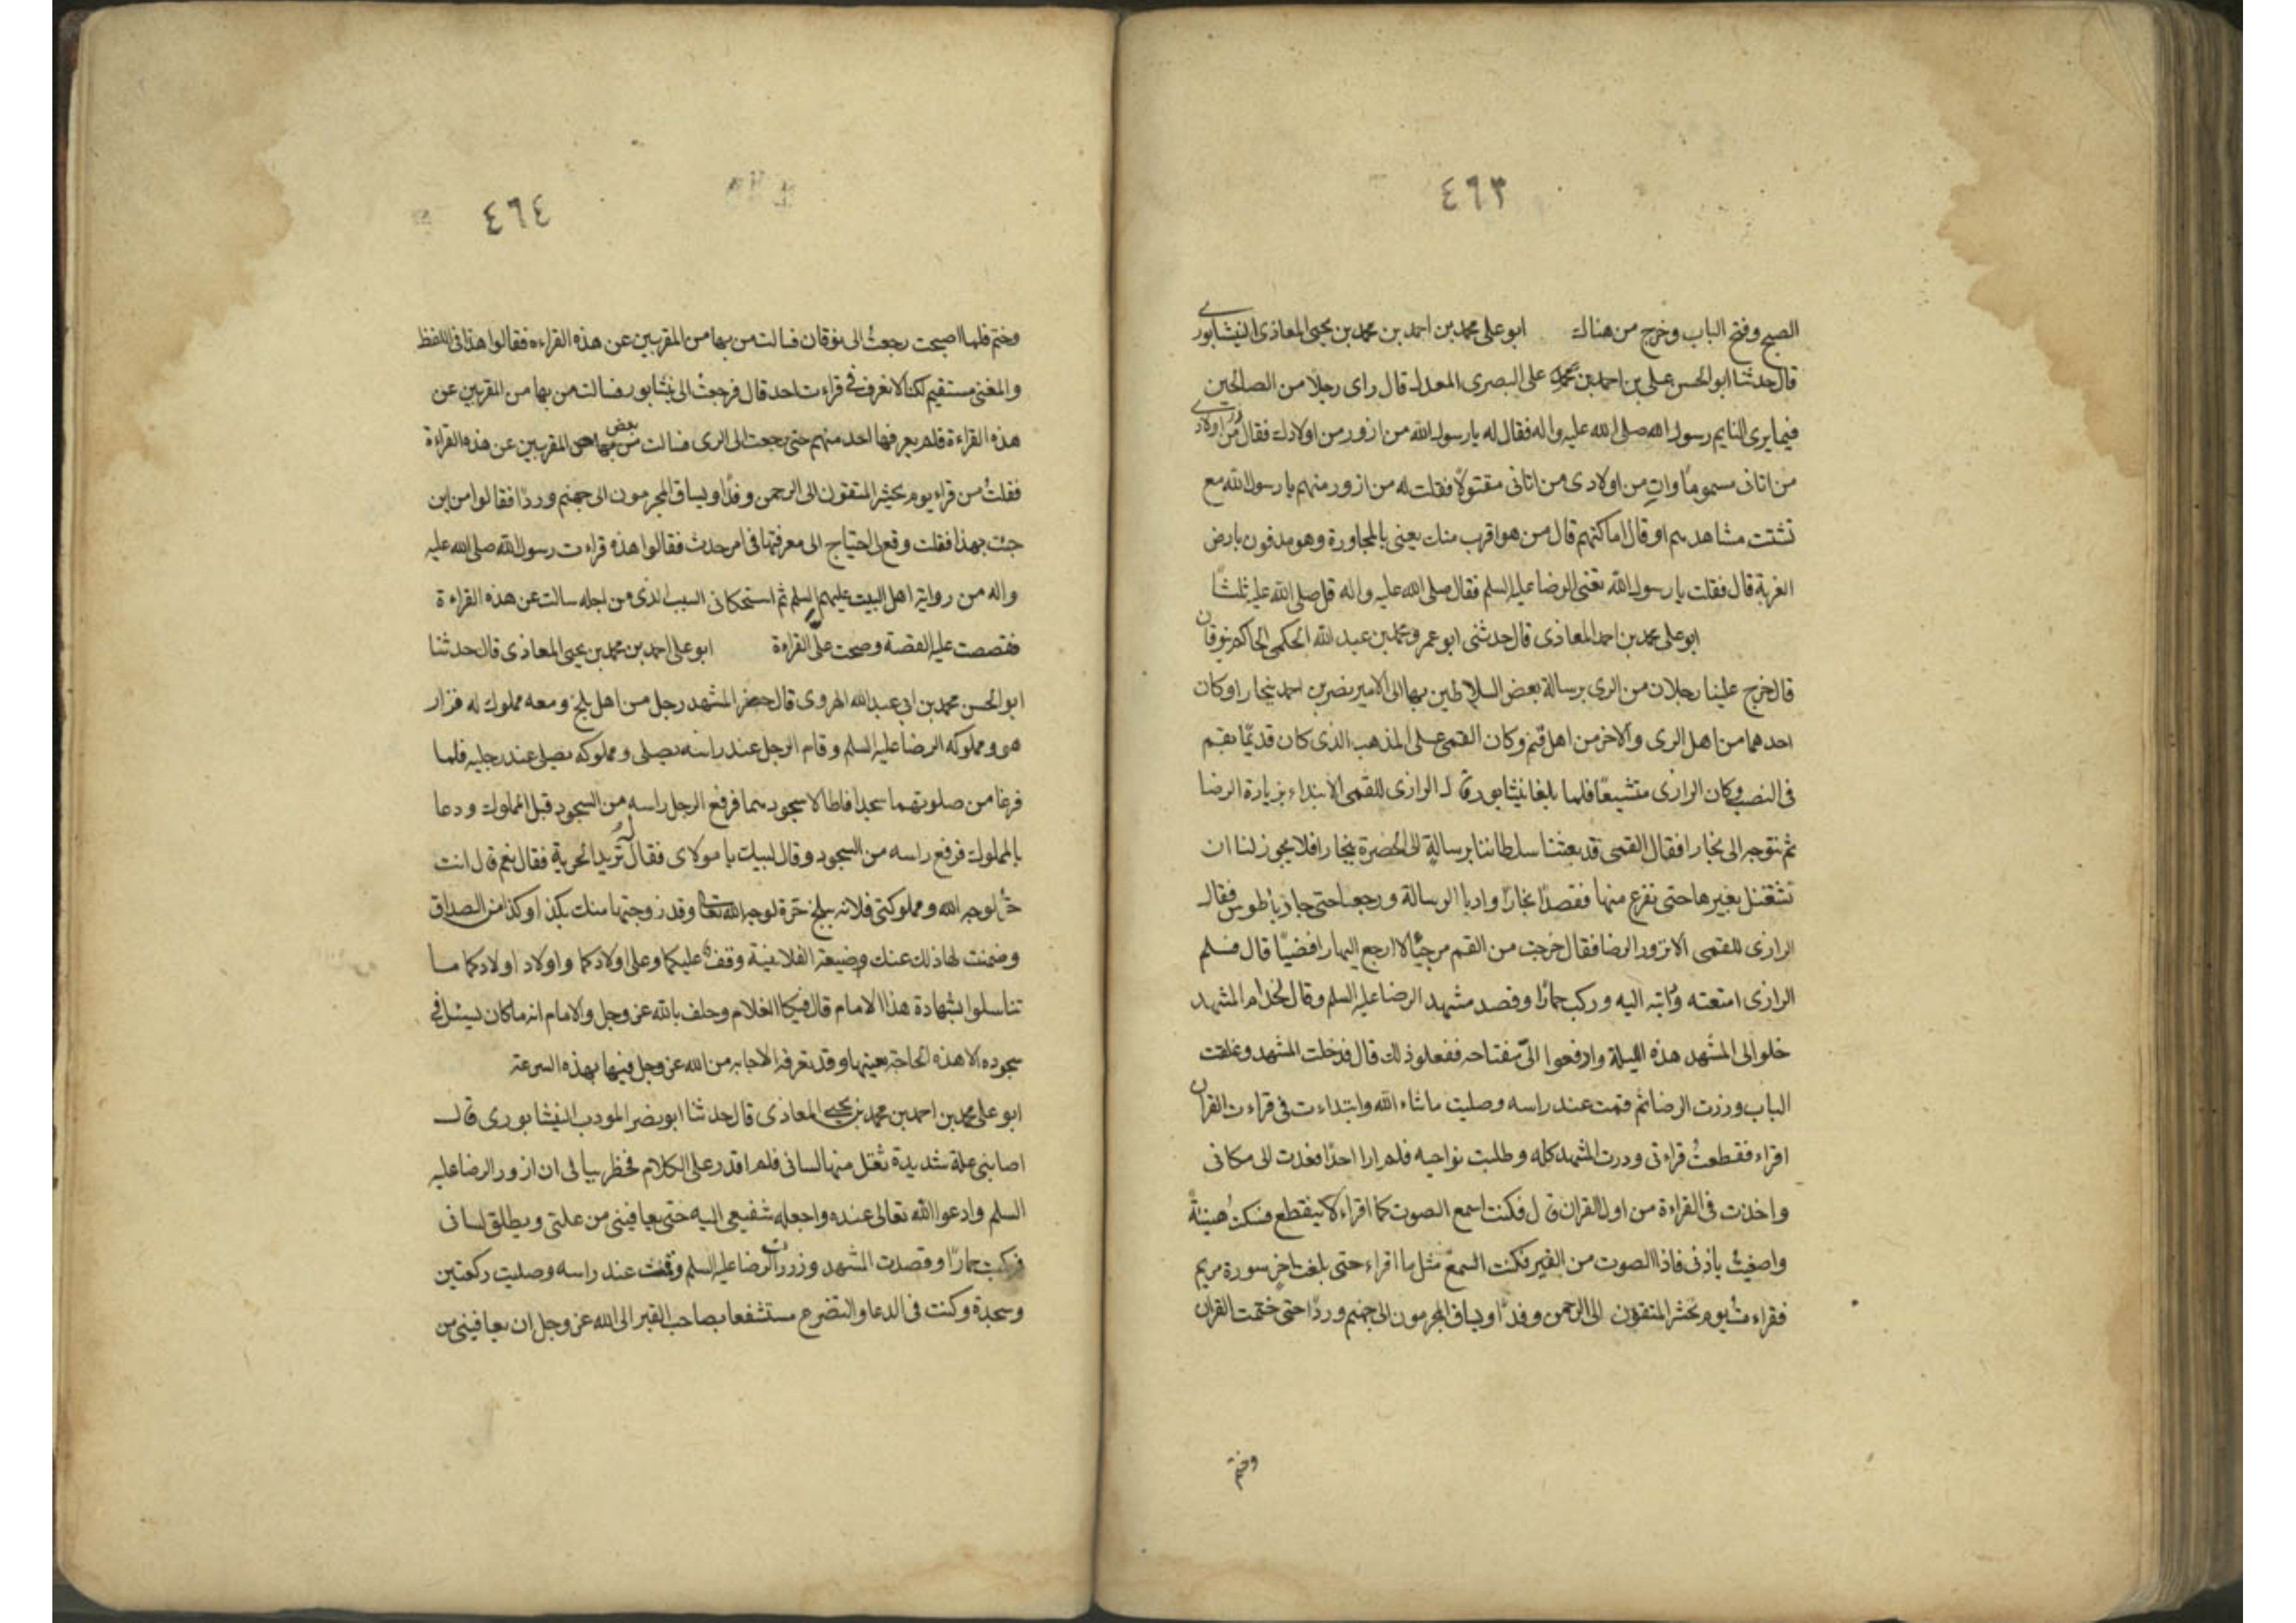 ٤٦٣
الصبح وفتح الباب وخرج من هناك ابو على محمد بن احمد بن محمد بن يحيى المعاذى النيشابورى
قال حدثنا ابو الحسن على بن احمد بن محمد على البصرى المعدل قال راى رجلا من الصالحين
فيما يرى النايم رسول الله صلى الله عليه واله فقال له يا رسول الله من ازور من اولادك فقال من اولادى
من اتانى مسموما وات من اولادى من اتانى مقتولًا فقلت له من ازور منهم يا رسول الله مع
تشتت مشاهدهم او قال اماكنهم قال من هو اقرب منك يعنى بالمجاورة وهو مدفون بارض
الغربة قال فقلت يا رسول الله تعنى الرضا عليه السلم فقال صلى الله عليه واله قل صلى الله عليه ثلثًا
ابو على محمد بن احمد المعاذى قال حدثنى ابو عمرو محمد بن عبد الله الحكمى الحاكم بنوقان
قال خرج علينا رجلان من الرى برسالة بعض السلاطين بها الى الامير نصر بن احمد ببخارا وكان
احدهما من اهل الرى والاخر من اهل قم وكان القمى على المذهب الذى كان قديمًا بقم
فى النصب وكان الرازى متشيعًا فلما بلغا نيشابور قال الرازى للقمى الا نبتداء بزيارة الرضا
ثم نتوجه الى بخارا فقال القمى قد بعثنا سلطاننا برسالة الى الحضرة ببخارا فلا يجوز لنا ان
نشتغل بغيرها حتى نفرغ منها فقصدا بخارا واديا الرسالة ورجعا حتى حاذيا طوس فقال
الرازى للقمى الا تزور الرضا فقال خرجت من القم مرجيًا لا ارجع اليها رافضيًا قال فسلم
الرازى امتعته ودابته اليه وركب حمارًا وقصد مشهد الرضا عليه السلم وقال لخدام المشهد
خلوا لى المشهد هذه الليلة وادفعوا الى مفتاحه ففعلو ذلك قال فدخلت المشهد وغلقت
الباب وزرت الرضا ثم قمت عند راسه وصليت ماشاء الله وابتداءت فى قراءت القران
اقراء فقطعتُ قراءتى ودرت المشهد كله وطلبت نواحيه فلم ارا احدًا فعدت الى مكانى
واخذت فى القراءة من اول القران قال فكنت اسمع الصوت كما اقراء لا ينقطع فسكت هنيئةً
واصغيت باذنى فاذا الصوت من القبر فكنت اسمع مثل ما اقراء حتى بلغت اخر سورة مريم
فقراءت يوم نحشر المتقون الى الرحمن وفدًا ويساق المجرمون الى جهنم وردًا حتى ختمت القران
وختم
٤٦٤
وختم فلما اصبحت رجعتُ الى نوقان فسالت من بها من المقريين عن هذه القراءه فقالوا هذا فى اللفظ
والمعنى مستقيم لكنا لا نعرف فى قراءت احد قال فرجعتُ الى نيشابور فسالت من بها من المقريين عن
هذه القراءة فلم يعرفها احد منهم حتى رجعت الى الرى فسالت من بها بعض المقريين عن هذه القراءة
فقلتُ من قراء يوم يحشر المتقون الى الرحمن وفدًا ويساق المجرمون الى جهنم وردًا فقالوا من اين
جئت بهذا فقلت وقع لى احتياج الى معرفتها فى امر حدث فقالوا هذه قراءت رسول الله صلى الله عليه
واله من رواية اهل البيت عليهم السلم ثم استحكانى السبب الذى من اجله سالت عن هذه القراءة
فقصصت عليه القصة وصحت على القراءة ابو على احمد بن محمد بن يحيى المعاذى قال حدثنا
ابو الحسن محمد بن ابى عبد الله الهروى قال حضر المشهد رجل من اهل بلخ ومعه مملوك له فزار
هو ومملوكه الرضا عليه السلم وقام الرجل عند راسه يصلى ومملوكه يصلى عند رجليه فلما
فرغا من صلوتهما سجدا فاطالا سجودهما فرفع الرجل راسه من السجود قبل المملوك ودعا
بالمملوك فرفع راسه من السجود وقال لبيك يا مولاى فقال له تريد الحرية فقال نعم قال انت
حر لوجه الله ومملوكتى فلانه ببلخ حرة لوجه الله تعا وقد زوجتها منك بكذا وكذا من الصداق
وضمنت لها ذلك عنك وضيعتى الفلانية وقف عليكما وعلى اولادكما واولاد اولادكما ما
تناسلوا بشهادة هذا الامام قال فبكا الغلام وحلف بالله عز وجل والامام انه ما كان يسئل فى
سجوده الا هذه الحاجة بعينها وقد تعرفه الاجابه من الله عز وجل فيها بهذه السرعة
ابو على محمد بن احمد بن محمد بن يحيى المعاذى قال حدثنا ابو نصر المودب النيشابورى قال
اصابنى علة شديدة ثقل منها لسانى فلم اقدر على الكلام فخطر ببالى ان ازور الرضا عليه
السلم وادعوا الله تعالى عنده واجعله شفيعى اليه حتى يعافينى من علتى ويطلق لسانى
فركبت حمارًا وقصدت المشهد وزرت الرضا عليه السلم وقفت عند راسه وصليت ركعتين
وسجدة وكنت فى الدعا والتضرع مستشفعا بصاحب القبر الى الله عز وجل ان يعافينى من